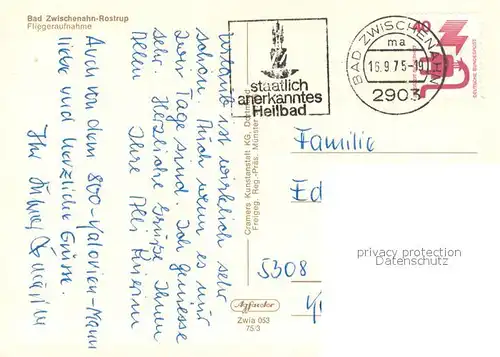 Bad Zwischenahn-Rostrup
Fliegeraufnahme
Urlaub ist wirklich sehr
schön. Auch wenn es nur
zwei Tage sind. Ich geniesse
sehr. Herzliche Grüße Ihnen
Allen Ihre
Auch von dem 800-Kalorien-Mann
liebe und herzliche Grüße.
Ihr
Cramers Kunstanstalt KG, Dortmund
Freigeg. Reg.-Präs. Münster
Agfacolor
Zwia 053
75/3
staatlich
anerkanntes
Heilbad
BAD ZWISCHENAHN
ma
16.9.75-19
2903
40
DEUTSCHE BUNDESPOST
Familie
Ed
5308
privacy protection
Datenschutz